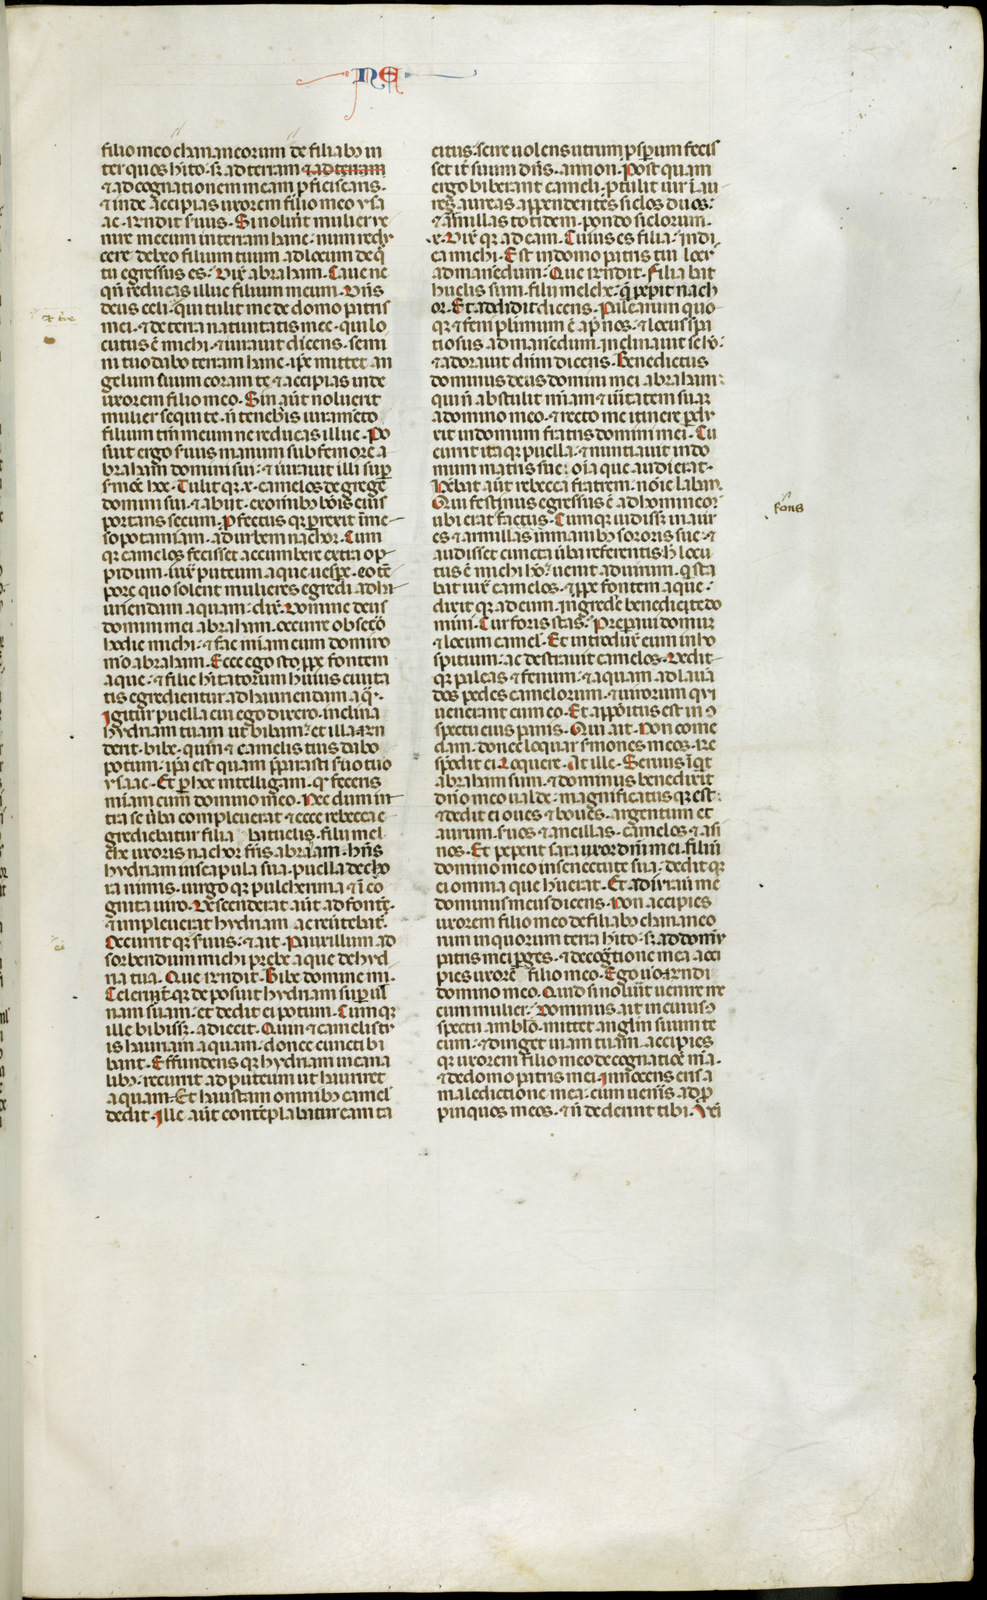 NE
filio meo chananeorum de filiab9 in
ter quos hito · sʒ ad terram & ad terram
& ad cognationem meam ꝓficiscaris ·
& inde accipias uxorem filio meo ysa
ac · Rn̄dit s̄uus · Si nolu̅t mulier ue
nire mecum in terram hanc · num redu
cere debeo filium tuum ad locum de q̊
tu egressus es · Dix̄ abraham · Caue ne
qn̄ reducas illuc filium meum · Dn̄s
deus celi · qui tulit me de domo patris
mei · & de terra natiuitatis mee · qui lo
cutus ē michi · & iurauit dicens · semi
ni tuo dabo terram hanc · ip̄e mittet an
gelum suum coram te · & accipias inde
uxorem filio meo · Sin aūt noluerit
mulier sequi te · n̄ teneb̄is iuram̄eto
filium tm̄ meum ne reducas illuc · Po
suit ergo s̄uus manum sub femore a
braham domini sui · & iurauit illi sup̄
s̄moē hoc · Tulit qʒ · x · camelos de grege
domini sui · & abiit · ex om̄ibʒ bo̅is eius
portans secum · Profectus qʒ perrexit in me
sopotamiam · ad urbem nachor · Cum
qʒ camelos fecisset accumbere extra op
pidum · iux̄ puteum aque uesp̄e · eo tē
pore quo solent mulieres egredi ad ha
uriendam aquam · dix̄ · Domine deus
domini mei abraham · occurre obsecro
hodie michi · & fac mīam cum domino
m̄o abraham · Ecce ego sto ꝓpe fontem
aque · & filie hitatorum huius ciuita
tis egredientur ad hauriendam aq̄ ·
Igitur puella cui ego dixero · inclina
hydriam tuam ut bibam · et illa rn̄
derit · bibe · quin & camelis tuis dabo
potum · ip̄a est quam p̄parasti s̄uo tuo
ysaac · Et p̄ hoc intelligam · qʒ feceris
mīam cum domino m̄eo · Nec dum in
tra se ūba compleuerat · & ecce rebecca e
grediebatur filia batuelis · filii mel
che uxoris nachor fr̄is abraam · hn̄s
hydriam in scapula sua · puella deco
ra nimis · uirgo qʒ pulcherrima & in̄co
gnita uiro · Descenderat aūt ad font̄e ·
& impleuerat hydriam · ac reu̅tebat̄ ·
Occurrit qʒ s̄uus · & ait · Pauxillum ad
sorbendum michi prebe aque de hyd
ria tua · Que rn̄dit · Bibe domine mi ·
Celerit̄ qʒ deposuit hydriam sup̄ ul
nam suam · et dedit ei potum · Cum qʒ
ille bibissʒ · adiecit · Quin & camelis tu
is hauriam aquam · donec cuncti bi
bant · Effundens qʒ hydriam in cana
libʒ · recurrit ad puteum ut hauriret
aquam · Et haustam omnibʒ camel̄
dedit · Ille aūt contemplabatur eam ta
citus · scire uolens utrum ꝓsperum fecis
set it̄ suum dn̄s · an non · Post quam
ergo biberunt cameli · ꝓtulit uir in au
res aureas appendentes siclos duos ·
& armillas totidem · pondo siclorum ·
x · Dix̄ qʒ ad eam · Cuius es filia · indi
ca michi · Est in domo patris tui locꝰ
ad manendum · Que rn̄dit · Filia bat
huelis sum · filii melche · q̄ peperit nach
or · Et addidit dicens · Palearum quo
qʒ & feni plurimum ē ap̄ nos · & locus spa
tiosus ad manedum · inclinauit se h̊ ·
& adorauit dn̄m dicens · Benedictus
dominus deus domini mei abraham ·
qui n̄ abstulit mīam & ūitatem suam
a domino meo · & recto me itinere ꝑdu
xit in domum fratris domini mei · Cu
currit ita qʒ puella · & nuntiauit in do
mum matris sue · oīa que audierat ·
Hēbat aūt rebecca fratrem · noīe laban ·
Qui festinus egressus ē ad hominem
ubi erat factus · Cum qʒ uidissʒ in aur
es & armillas in manibʒ sororis sue · &
audisset cuncta ūba referentis h̄ locu
tus ē michi hō · uenit ad uirum · q̄ sta
bat iux̄ camelos · & ꝓpe fontem aque ·
dixit qʒ ad eum · ingrede benedicte do
mini · Cur foris stas · Preparaui domum
& locum camel̄ · Et introdux̄ eum in ho
spitium · ac destrauit camelos · Dedit
qʒ paleas & fenum · & aquam ad laua
dos pedes camelorum · & uirorum qui
uenerant cum eo · Et app̄oitus est in 9
spectu eius panis · Qui ait · Non come
dam · donec loquar s̄mones meos · Re
spōdit ei · Loquere · At ille · Seruus in̄qt
abraham sum · & dominus benedixit
dn̄o meo ualde · magnificatus qʒ est ·
& dedit ei oues & boues · argentum et
aurum · s̄uos & ancillas · camelos & asi
nos · Et peperit sara uxor dn̄i mei · filium
domino meo in senectute sua · dedit qʒ
ei omnia que h̄uerat · Et adiurauit me
dominus meus dicens · Non accipies
uxorem filio meo de filiabʒ chananeo
rum in quorum terra hito · sʒ ad domū
patris mei ꝑges · & de cognatione mea acci
pies uxorē filio meo · Ego ūo rn̄di
domino meo · Quid si noluit uenire me
cum mulier · Dominus ait in cuius 9
spectu ambl̄o · mittet angl̄m suum te
cum · & diriget uiam tuam · accipies
qʒ uxorem filio meo de cognatioē m̄a ·
& de domo patris mei · Innocens eris a
maledictione mea · cum uen̄is ad ꝓ
pinquos meos · & n̄ dederint tibi · Veni
fons